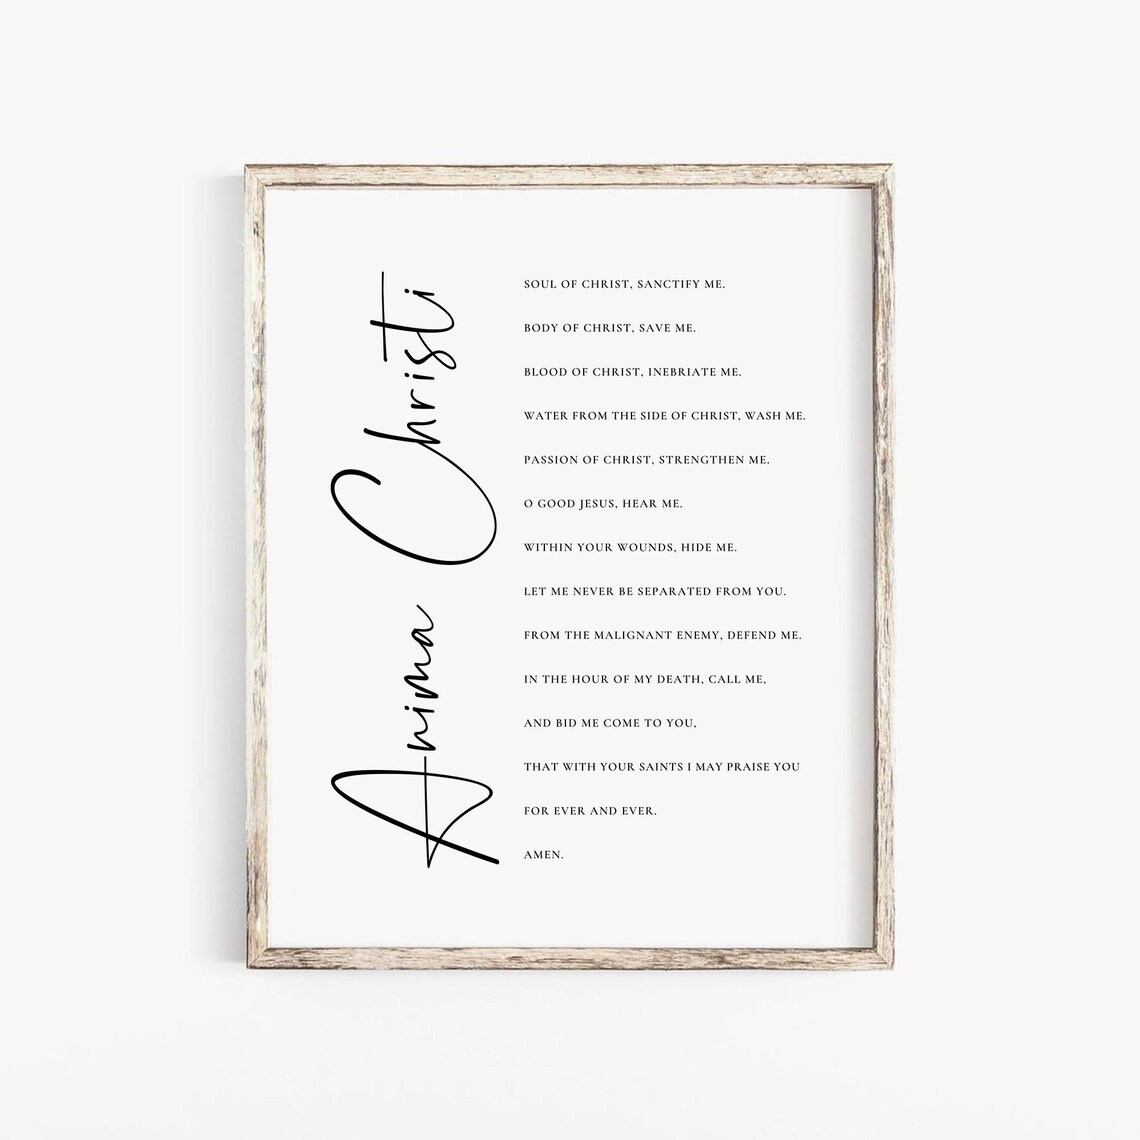 Anima Christi
SOUL OF CHRIST, SANCTIFY ME.
BODY OF CHRIST, SAVE ME.
BLOOD OF CHRIST, INEBRIATE ME.
WATER FROM THE SIDE OF CHRIST, WASH ME.
PASSION OF CHRIST, STRENGTHEN ME.
O GOOD JESUS, HEAR ME.
WITHIN YOUR WOUNDS, HIDE ME.
LET ME NEVER BE SEPARATED FROM YOU.
FROM THE MALIGNANT ENEMY, DEFEND ME.
IN THE HOUR OF MY DEATH, CALL ME,
AND BID ME COME TO YOU,
THAT WITH YOUR SAINTS I MAY PRAISE YOU
FOR EVER AND EVER.
AMEN.